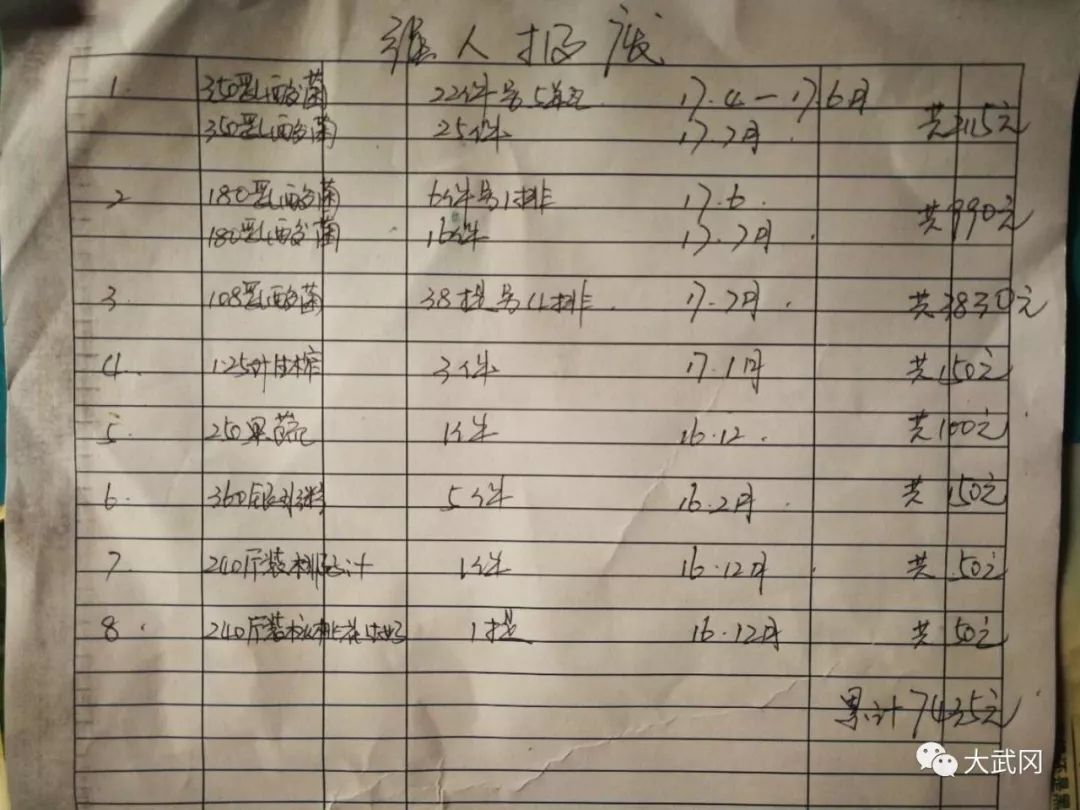 人报废
1. 350乳酸菌 22件另5单瓶 17.4-17.6月
350乳酸菌 25件 17.7月. 共2115元
2 180乳酸菌 6件另1排 17.6.
180乳酸菌 16件 17.7月. 共990元
3. 108乳酸菌 38提另11排. 17.7月. 共3830元
4. 125 3件 17.1月 共150元
5. 250果蔬 1件 16.12. 共100元
6. 360 5件 16.2月. 共150元
7. 240听装 1件 16.12月. 共50元
8. 240听装 1提 16.12月 共50元
累计7435元
大武冈